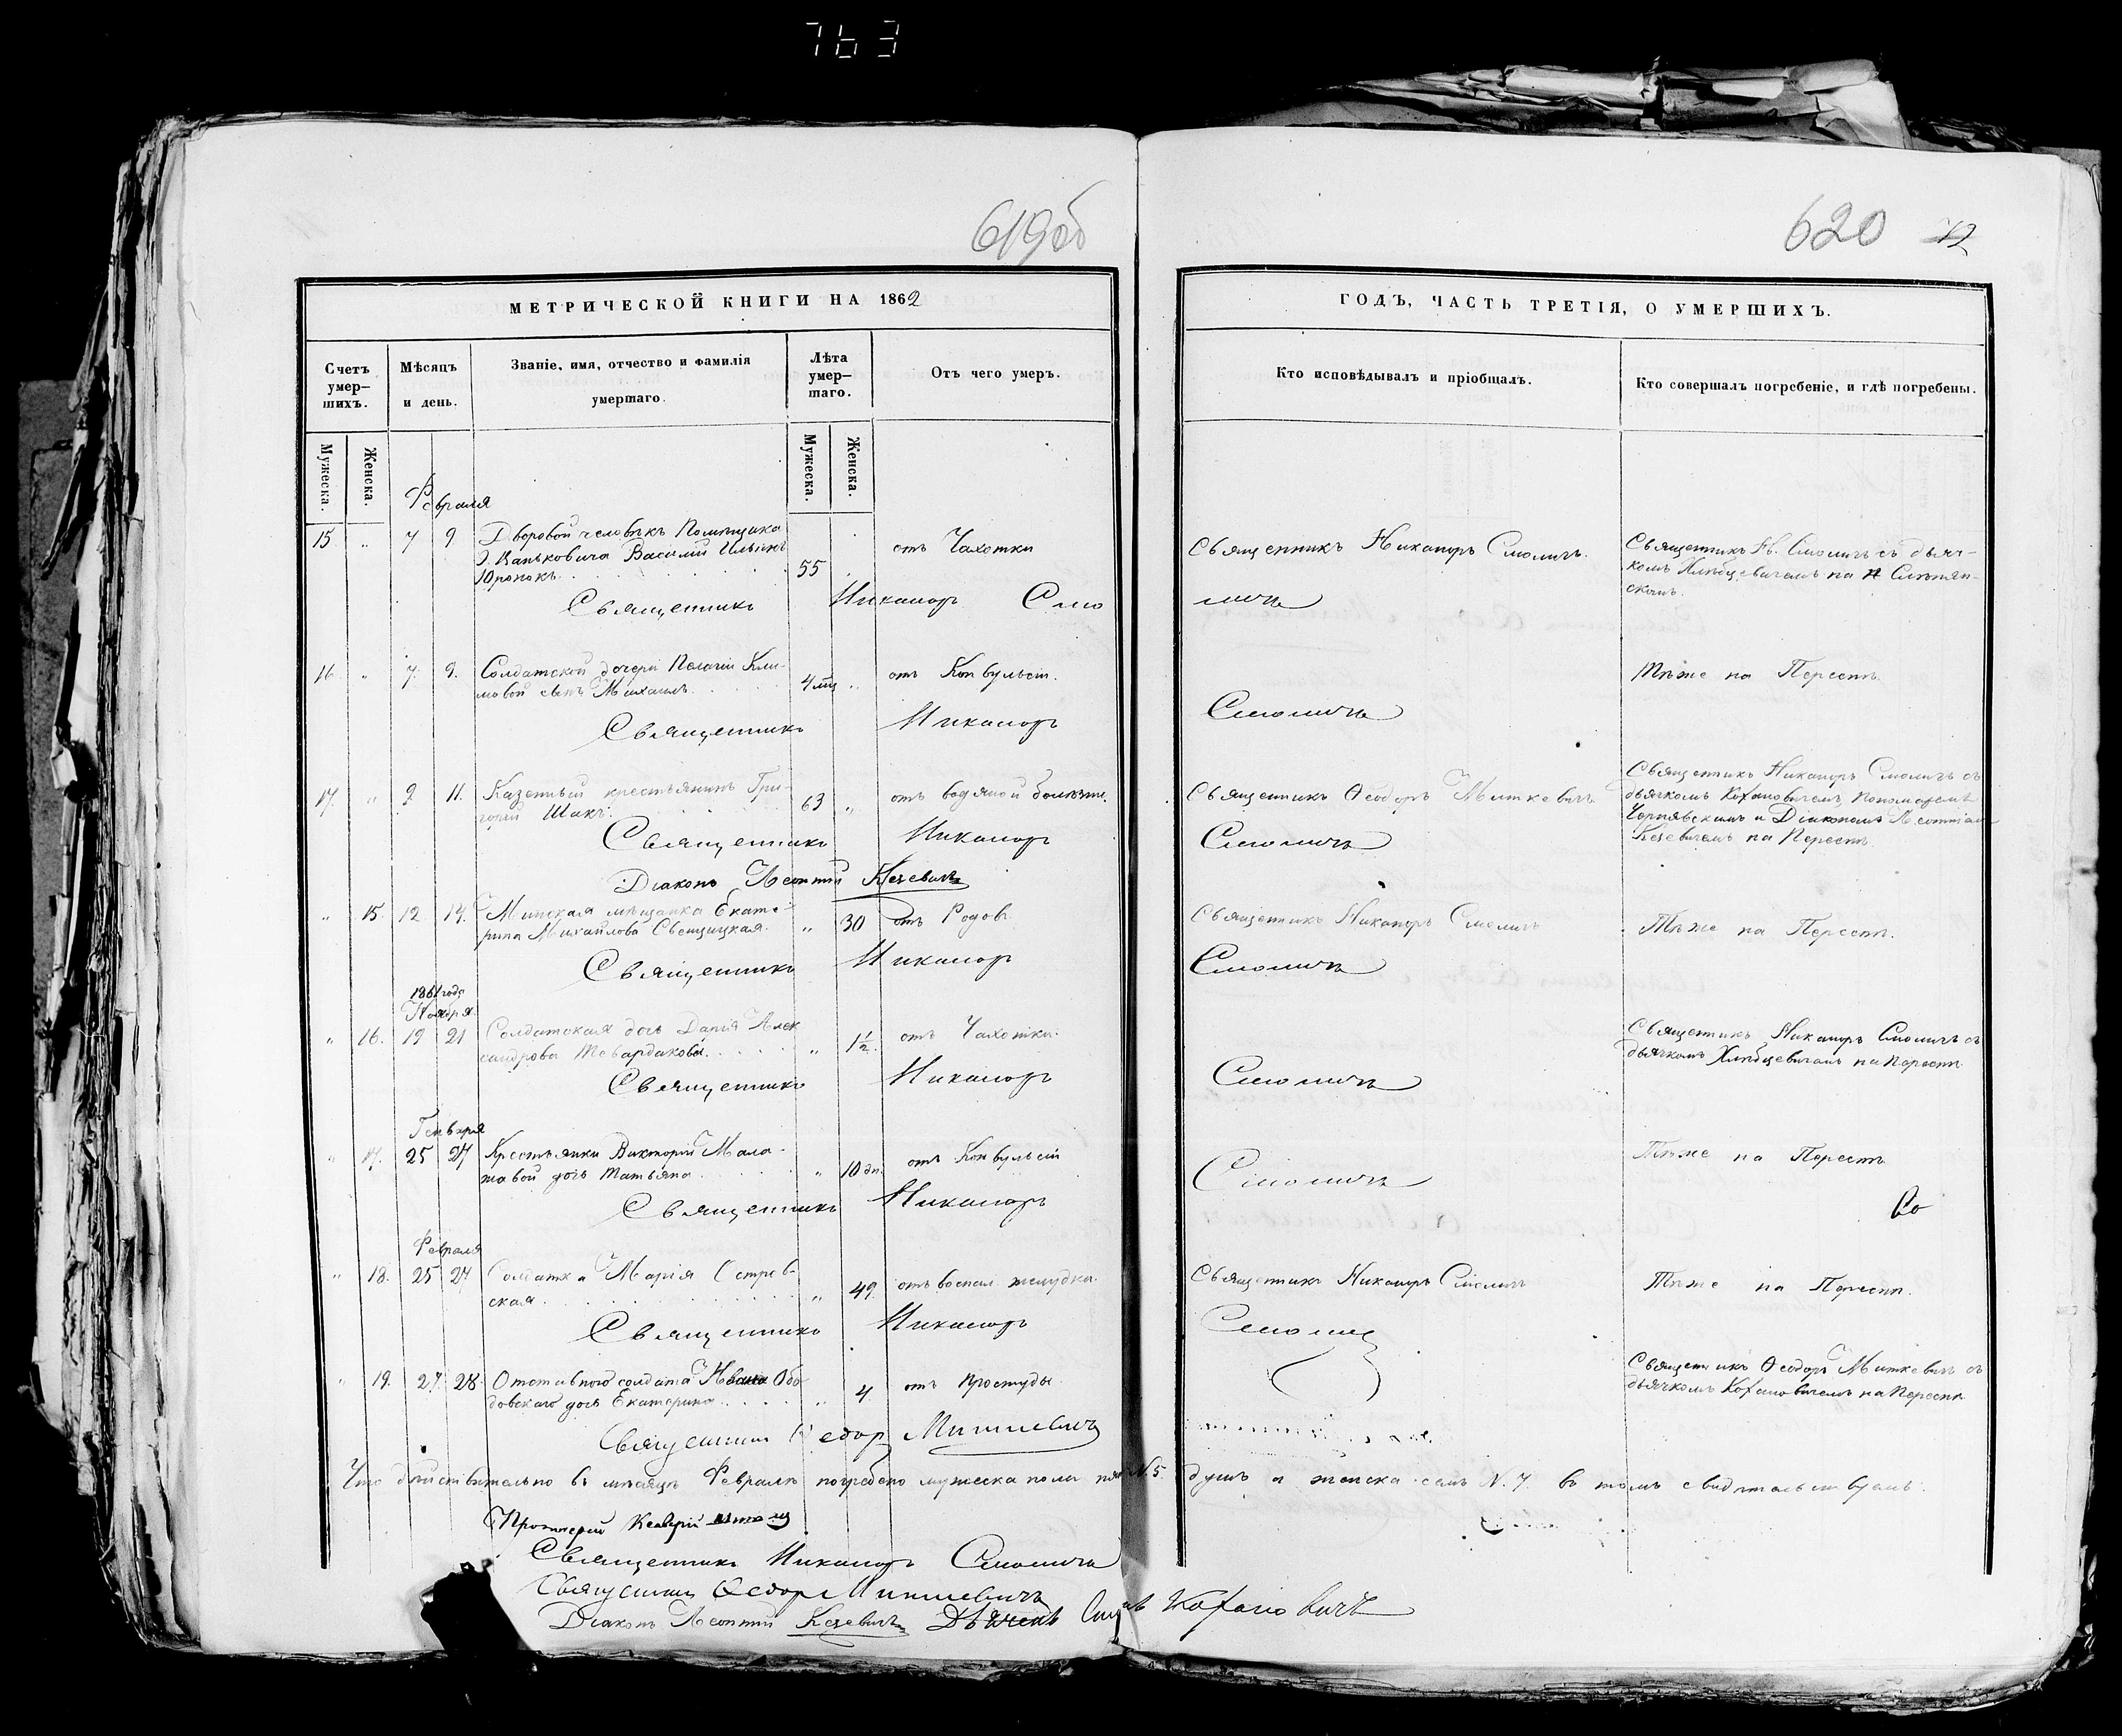 763
619об
620 72
МЕТРИЧЕСКОЙ КНИГИ НА 1862
ГОДЪ, ЧАСТЬ ТРЕТІЯ, О УМЕРШИХЪ.
Счетъ умер-
шихъ.
Мѣсяцъ
и день.
Званіе, имя, отчество и фамилія
умершаго.
Лѣта
умер-
шаго.
Отъ чего умеръ.
Кто исповѣдывалъ и пріобщалъ.
Кто совершалъ погребеніе, и гдѣ погребены.
Мужеска.
Женска.
Мужеска.
Женска.
Февраля
15. „ 7 9 Дворовой человѣкъ Помѣщика
Ваньковича Василій Ильинъ
Юронокъ. 55 отъ Чахотки
Священникъ Никаноръ Смоличъ.
Священникъ Н. Смоличъ съ дьяч-
комъ Хлѣбцевичемъ на Слѣпян-
скомъ.
Священникъ Никаноръ Смоличъ
16. „ 7. 9. Солдатской дочери Пелагіи Кли-
мовой сынъ Михаилъ. 4 мц „ отъ Конвульсіи.
Тѣже на Пересп.
Священникъ Никаноръ Смоличъ
17. „ 9 11. Казенный крестьянинъ Гри-
горій Шакъ. 63 „ отъ водяной болѣзни.
Священникъ Ѳеодоръ Миткевичъ
Священникъ Никаноръ Смоличъ съ
дьячкомъ Кохановичемъ, Пономаремъ
Чернявскимъ и Діакономъ Леонтіем
Кезевичемъ на Пересп.
Священникъ Никаноръ Смоличъ
Діаконъ Леонтій Кезевичъ
„ 15. 12 14. Минская мѣщанка Екате-
рина Михайлова Свенцицкая. „ 30 отъ Родов.
Священникъ Никаноръ Смоличъ
Тѣже на Пересп.
Священникъ Никаноръ Смоличъ
1861 года
Ноября
„ 16. 19 21 Солдатская дочь Дарія Алек
сандрова Товардакова. „ 1½. отъ Чахотки.
Священникъ Никаноръ Смоличъ съ
дьячкомъ Хлѣбцевичемъ на Пересп.
Священникъ Никаноръ Смоличъ
Генваря
„ 17. 25 27 Крестьянки Викторіи Мала-
товой дочь Татьяна. „ 10 дн. отъ Конвульсій
Тѣже на Пересп.
Священникъ Никаноръ Смоличъ
Со
Февраля
„ 18. 25 27 Солдатка Марія Остров-
ская. „ 49. отъ воспал. желудка.
Священникъ Никаноръ Смоличъ
Тѣже на Пересп.
Священникъ Никаноръ Смолич
„ 19. 27. 28. Отставного солдата Ивана Обо-
довскаго дочь Екатерина. „ 4. отъ простуды.
Священникъ Ѳеодоръ Миткевичъ съ
дьячкомъ Кохановичемъ на Пересп.
Священник Ѳедор Миткевичъ
Что дѣйствительно въ мѣсяцѣ Февралѣ погребено мужеска пола пять N. 5. душъ а женска семь N. 7. въ томъ свидѣтельствуемъ.
Протоіерей
Священникъ Никаноръ Смоличъ
Священник Ѳедор Миткевичъ
Діаконъ Леонтій Кезевичъ Дьячекъ Кохановичъ